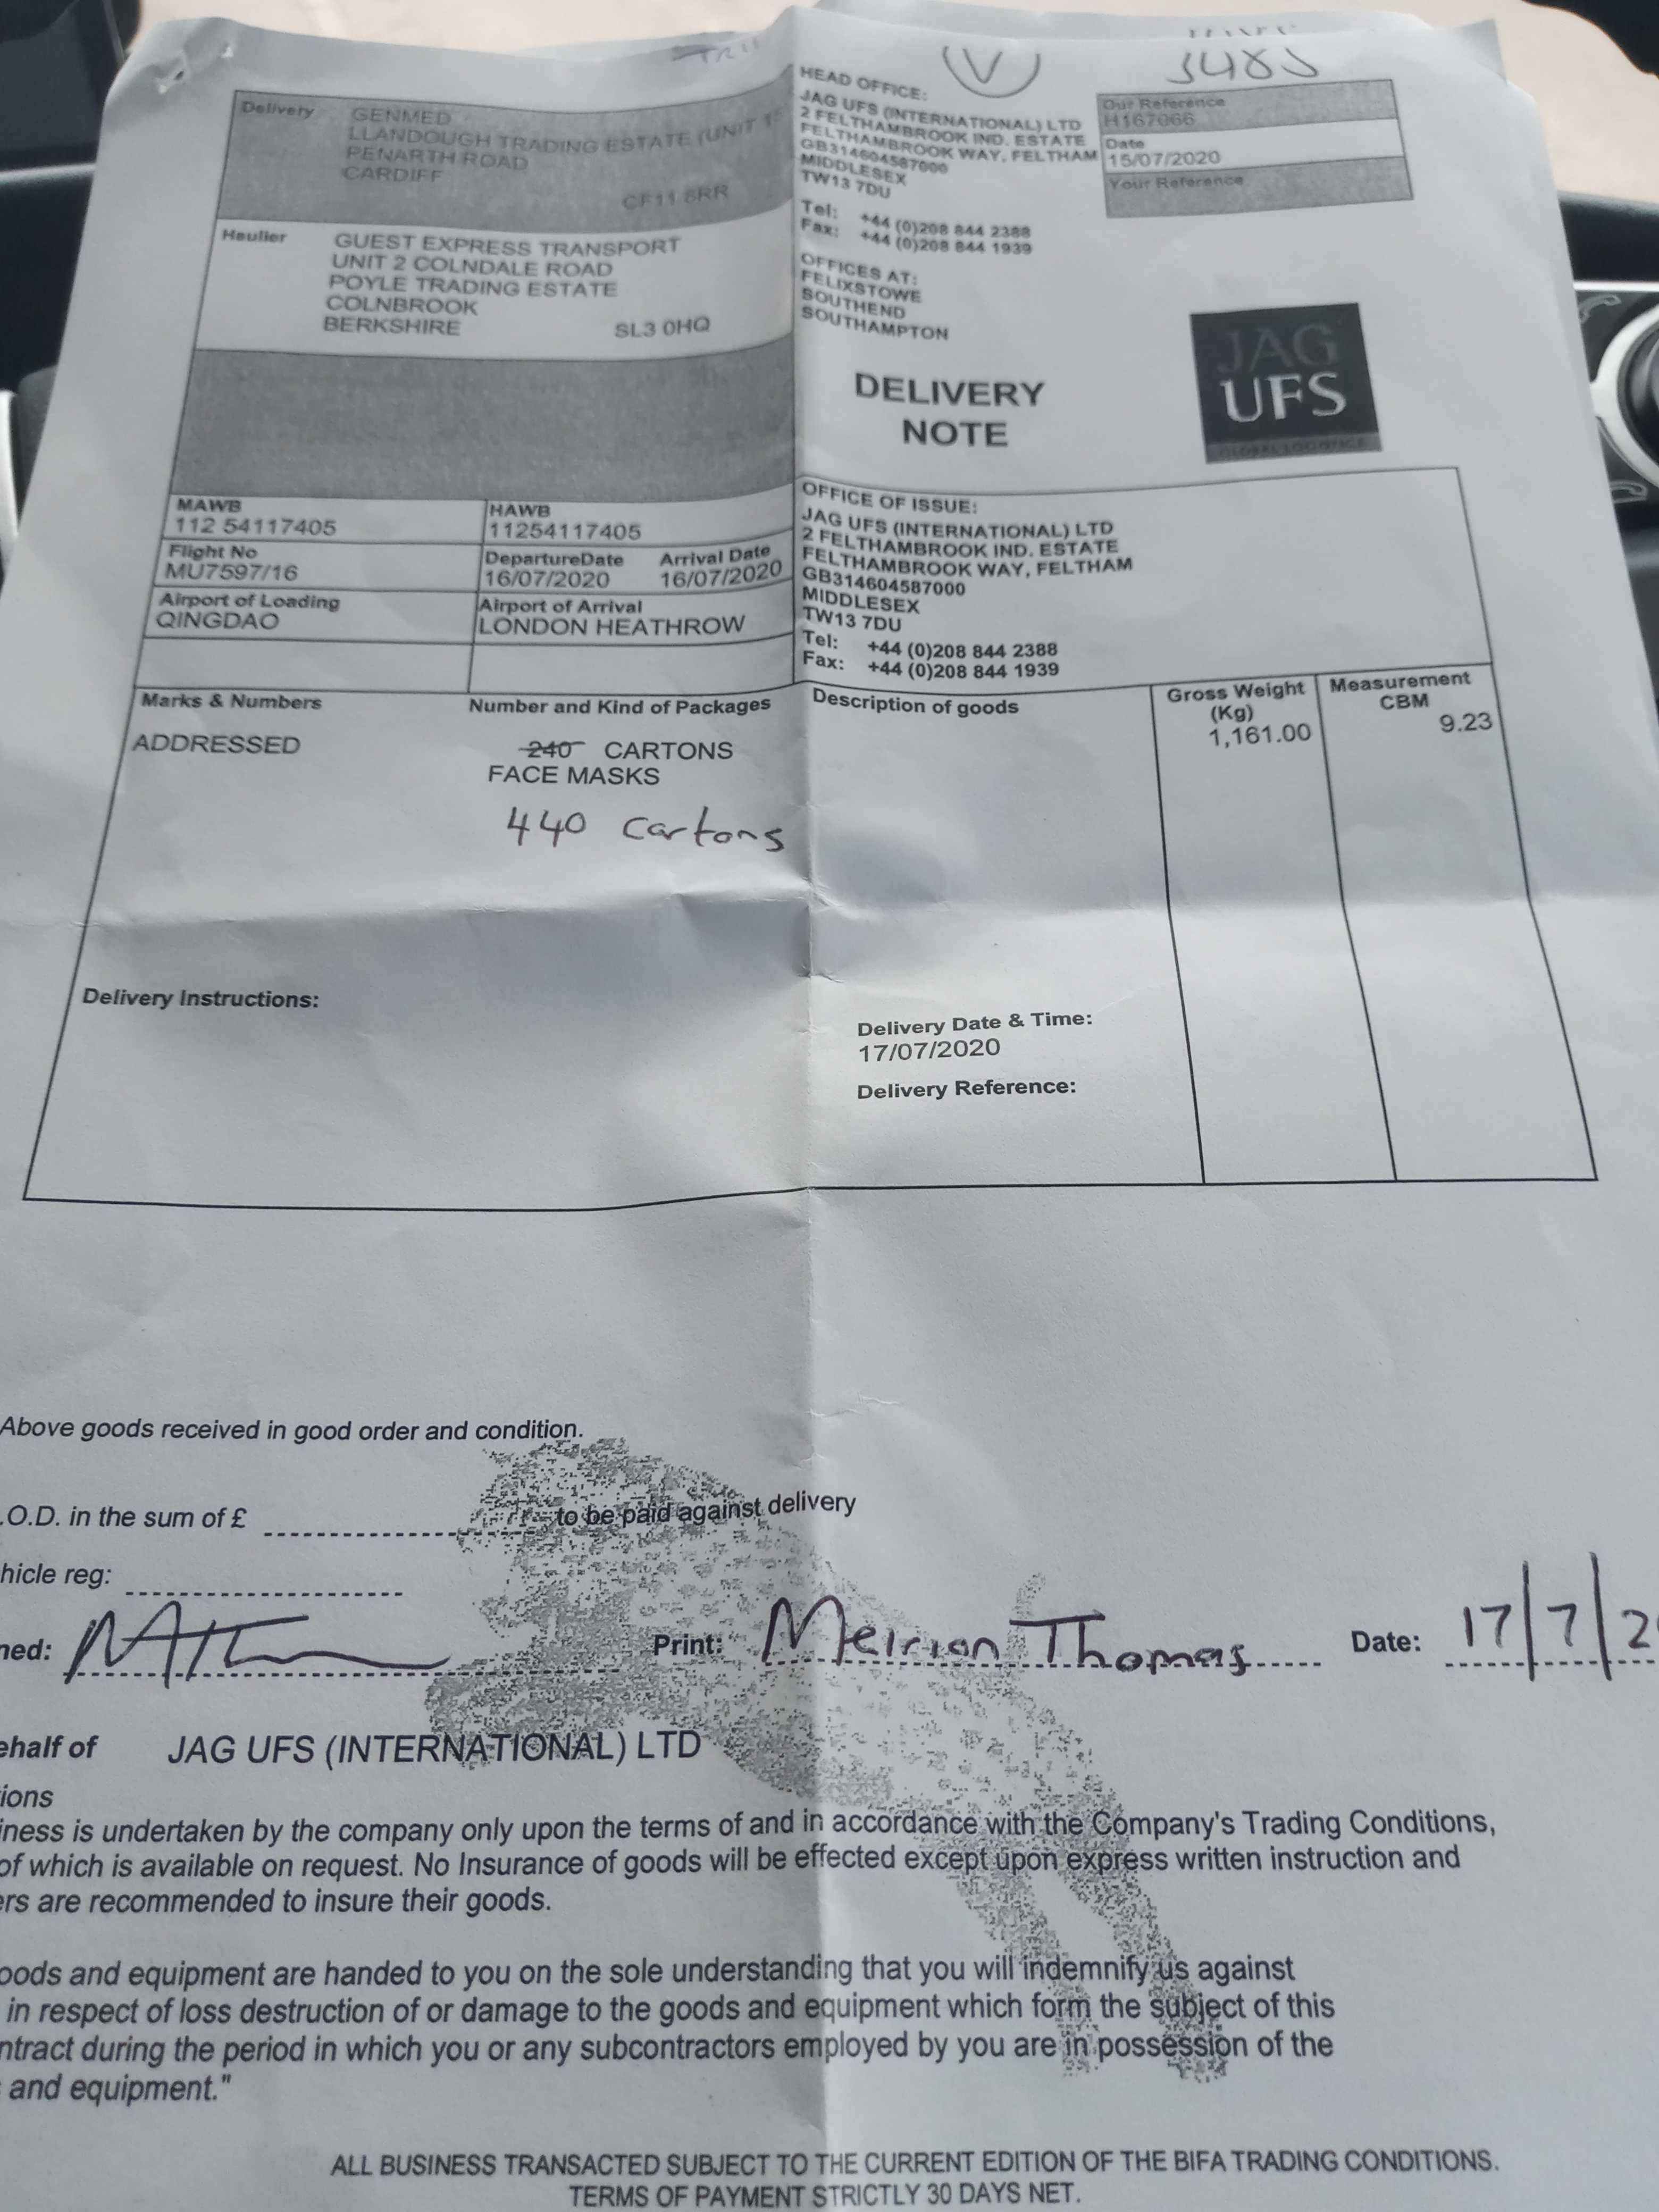 3485
Delivery
GENMED
LLANDOUGH TRADING ESTATE (UNIT
PENARTH ROAD
CARDIFF
Haulier
GUEST EXPRESS TRANSPORT
UNIT 2 COLNDALE ROAD
POYLE TRADING ESTATE
COLNBROOK
BERKSHIRE SL3 0HQ
HEAD OFFICE:
JAG UFS (INTERNATIONAL) LTD
2 FELTHAMBROOK IND. ESTATE
FELTHAMBROOK WAY, FELTHAM
GB314604587000
MIDDLESEX
TW13 7DU
Tel: +44 (0)208 844 2388
Fax: +44 (0)208 844 1939
OFFICES AT:
FELIXSTOWE
SOUTHEND
SOUTHAMPTON
Our Reference
H167066
Date
15/07/2020
Your Reference
DELIVERY
NOTE
JAG
UFS
GLOBAL LOGISTICS
MAWB
112 54117405
HAWB
11254117405
Flight No
MU7597/16
DepartureDate
16/07/2020
Arrival Date
16/07/2020
Airport of Loading
QINGDAO
Airport of Arrival
LONDON HEATHROW
OFFICE OF ISSUE:
JAG UFS (INTERNATIONAL) LTD
2 FELTHAMBROOK IND. ESTATE
FELTHAMBROOK WAY, FELTHAM
GB314604587000
MIDDLESEX
TW13 7DU
Tel: +44 (0)208 844 2388
Fax: +44 (0)208 844 1939
Marks & Numbers
Number and Kind of Packages
Description of goods
Gross Weight
(Kg)
Measurement
CBM
ADDRESSED
240 CARTONS
FACE MASKS
440 Cartons
1,161.00
9.23
Delivery Instructions:
Delivery Date & Time:
17/07/2020
Delivery Reference:
Above goods received in good order and condition.
.O.D. in the sum of £ to be paid against delivery
hicle reg:
ned: Print: Meirion Thomas Date: 17/7/2
ehalf of JAG UFS (INTERNATIONAL) LTD
ions
iness is undertaken by the company only upon the terms of and in accordance with the Company's Trading Conditions,
of which is available on request. No Insurance of goods will be effected except upon express written instruction and
ers are recommended to insure their goods.
oods and equipment are handed to you on the sole understanding that you will indemnify us against
in respect of loss destruction of or damage to the goods and equipment which form the subject of this
ntract during the period in which you or any subcontractors employed by you are in possession of the
and equipment."
ALL BUSINESS TRANSACTED SUBJECT TO THE CURRENT EDITION OF THE BIFA TRADING CONDITIONS.
TERMS OF PAYMENT STRICTLY 30 DAYS NET.